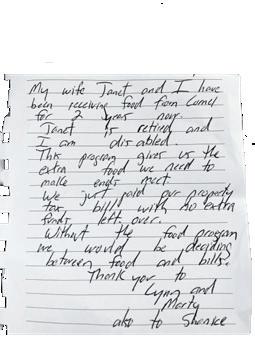 My wife Janet and I have
been receiving food from Comel
for 2 years now.
Janet is retired and
I am disabled.
This program gives us the
extra food we need to
make ends meet.
We just paid our property
tax bills with no extra
funds left over.
Without the food program
we would be deciding
between food and bills.
Thank you to
Lynn and
Marty
also to Shanice